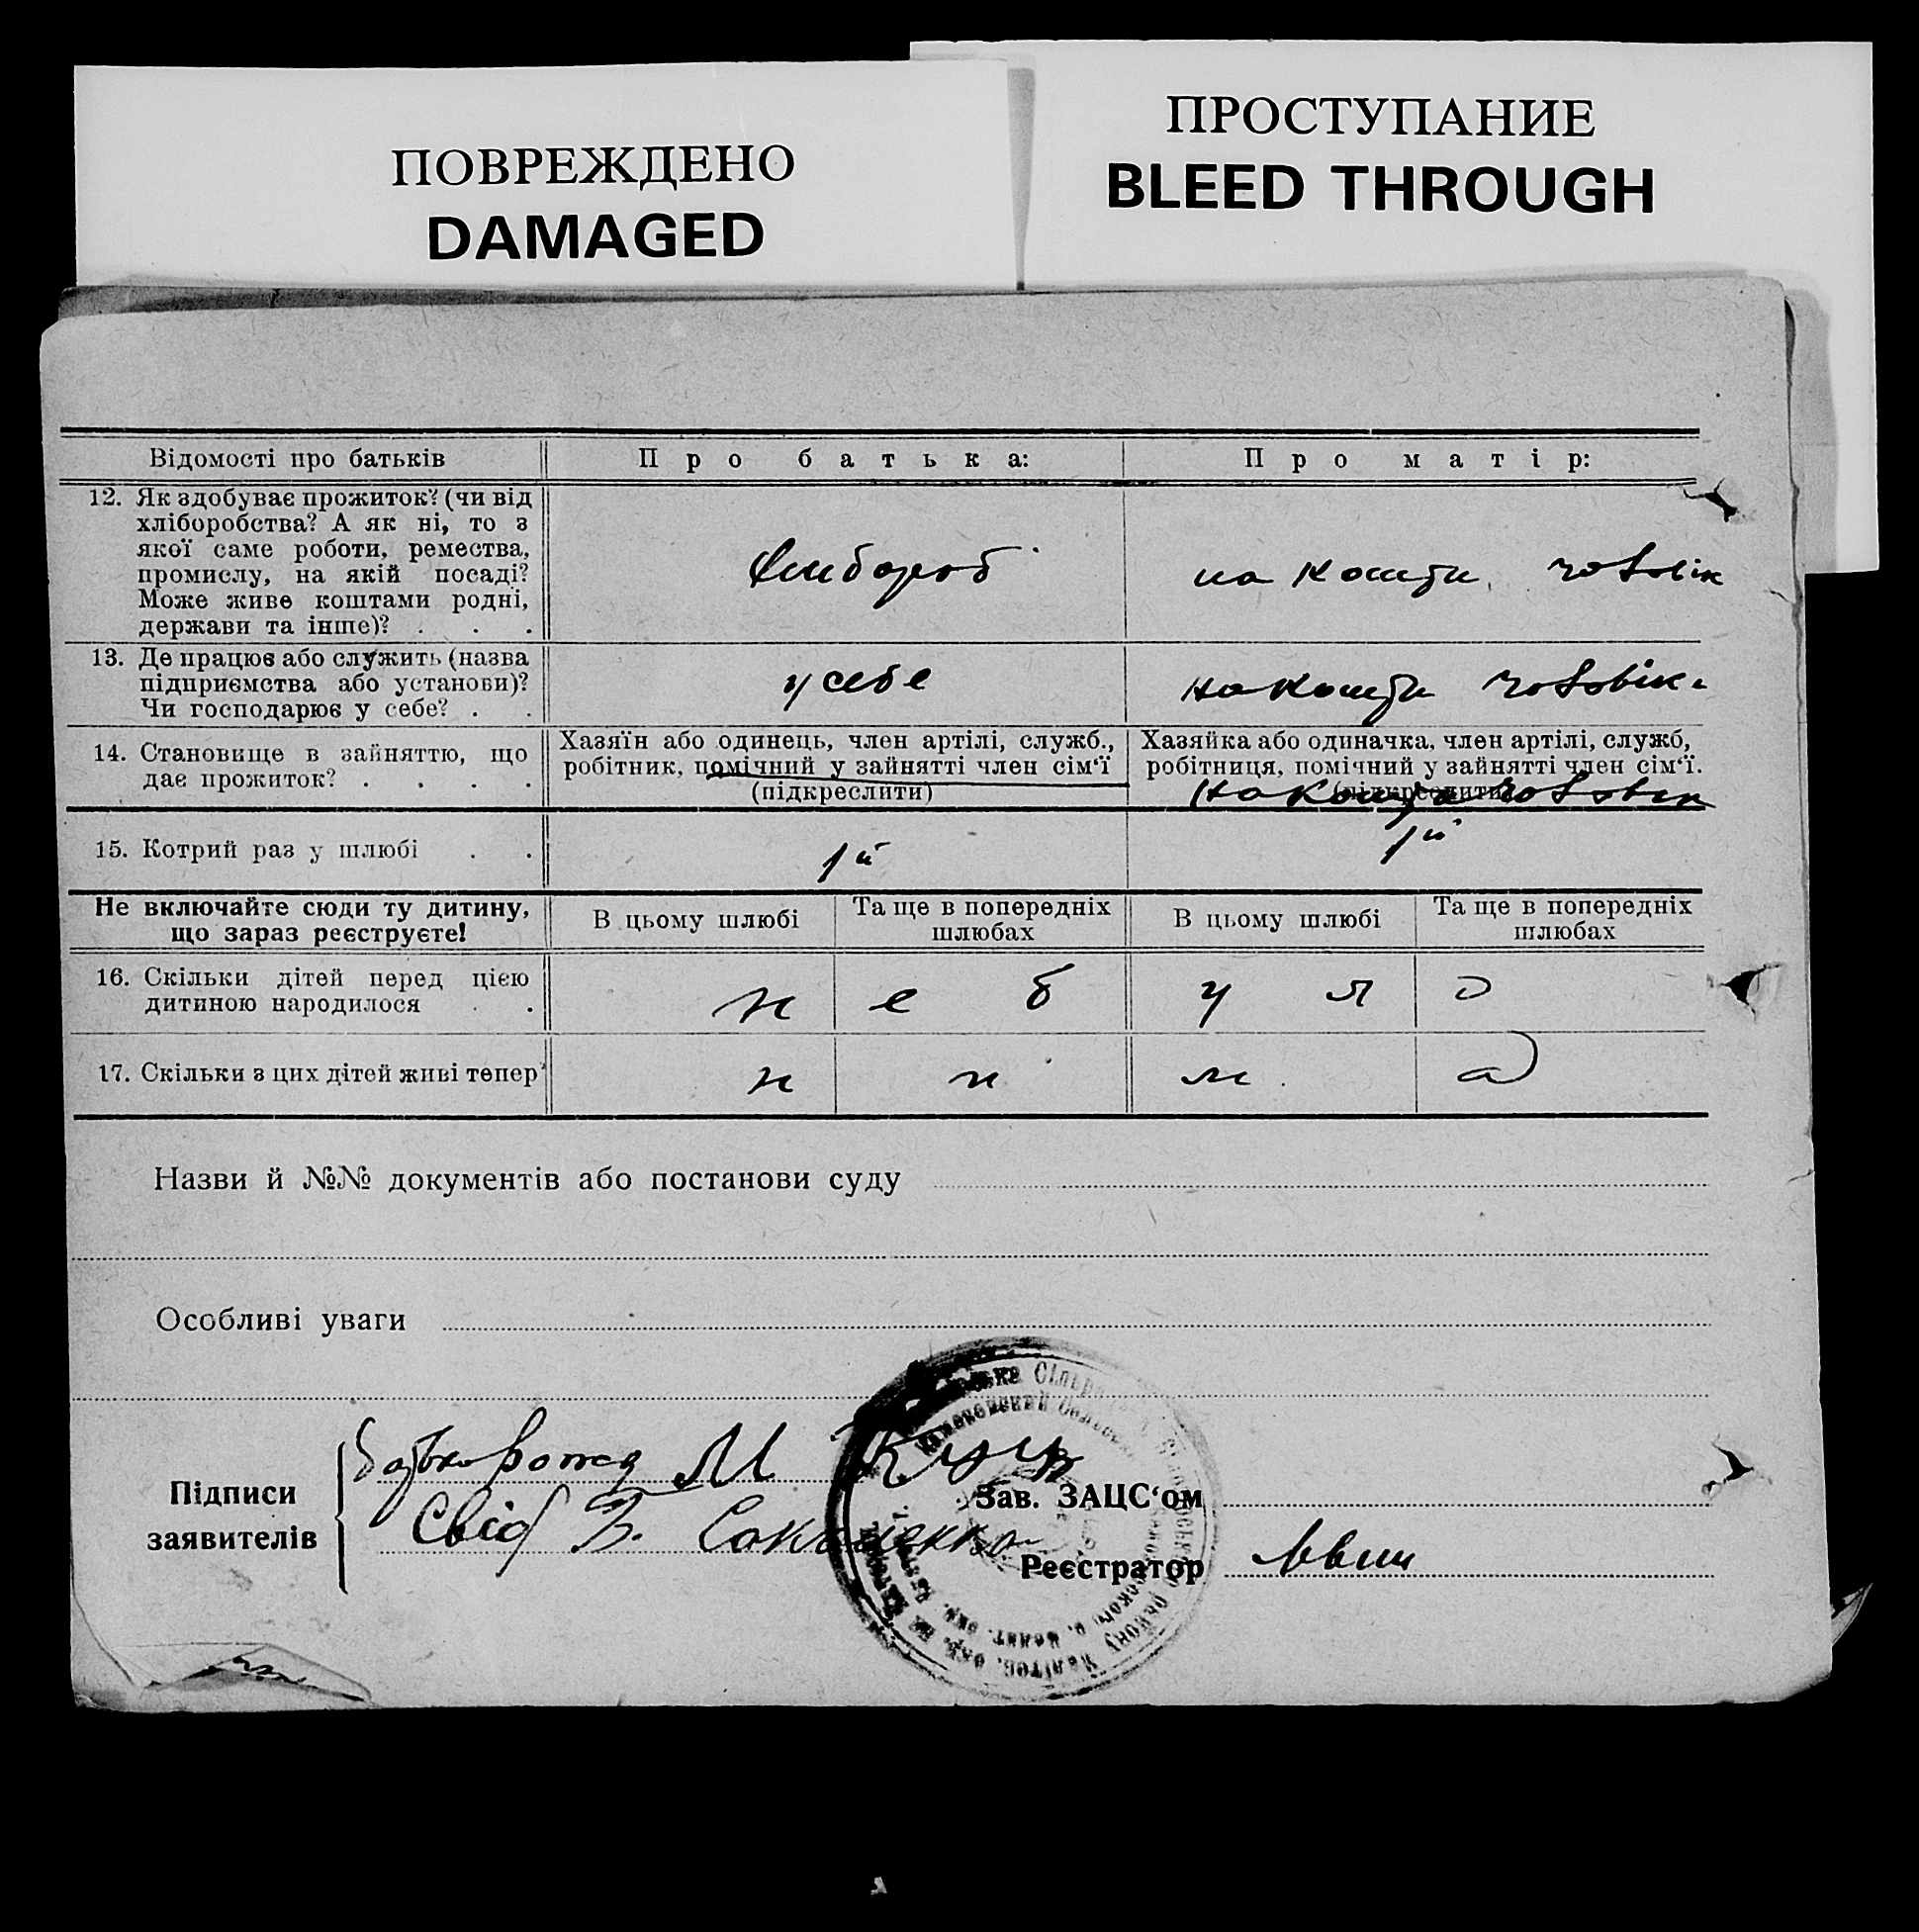 ПОВРЕЖДЕНО
DAMAGED
ПРОСТУПАНИЕ
BLEED THROUGH
Відомості про батьків
Про батька:
Про матір:
12. Як здобуває прожиток? (чи від
хліборобства? А як ні, то з
якої саме роботи, ремества,
промислу, на якій посаді?
Може живе коштами родні,
держави та інше)? . . .
на кошти чоловік
13. Де працює або служить (назва
підприємства або установи)?
Чи господарює у себе? . .
у себе
на кошти чоловік
14. Становище в зайняттю, що
дає прожиток? . . . .
Хазяїн або одинець, член артілі, служб.,
робітник, помічний у зайнятті член сім'ї
(підкреслити)
Хазяйка або одиначка, член артілі, служб,
робітниця, помічний у зайнятті член сім'ї.
(підкреслити)
на кошти чоловік
15. Котрий раз у шлюбі . .
1й
1й
Не включайте сюди ту дитину,
що зараз реєструєте!
В цьому шлюбі
Та ще в попередніх
шлюбах
В цьому шлюбі
Та ще в попередніх
шлюбах
16. Скільки дітей перед цією
дитиною народилося . .
н е б у л о
17. Скільки з цих дітей живі тепер
Назви й №№ документів або постанови суду
Особливі уваги
Підписи
заявителів
М
Свід
Зав. ЗАЦС'ом
Реєстратор